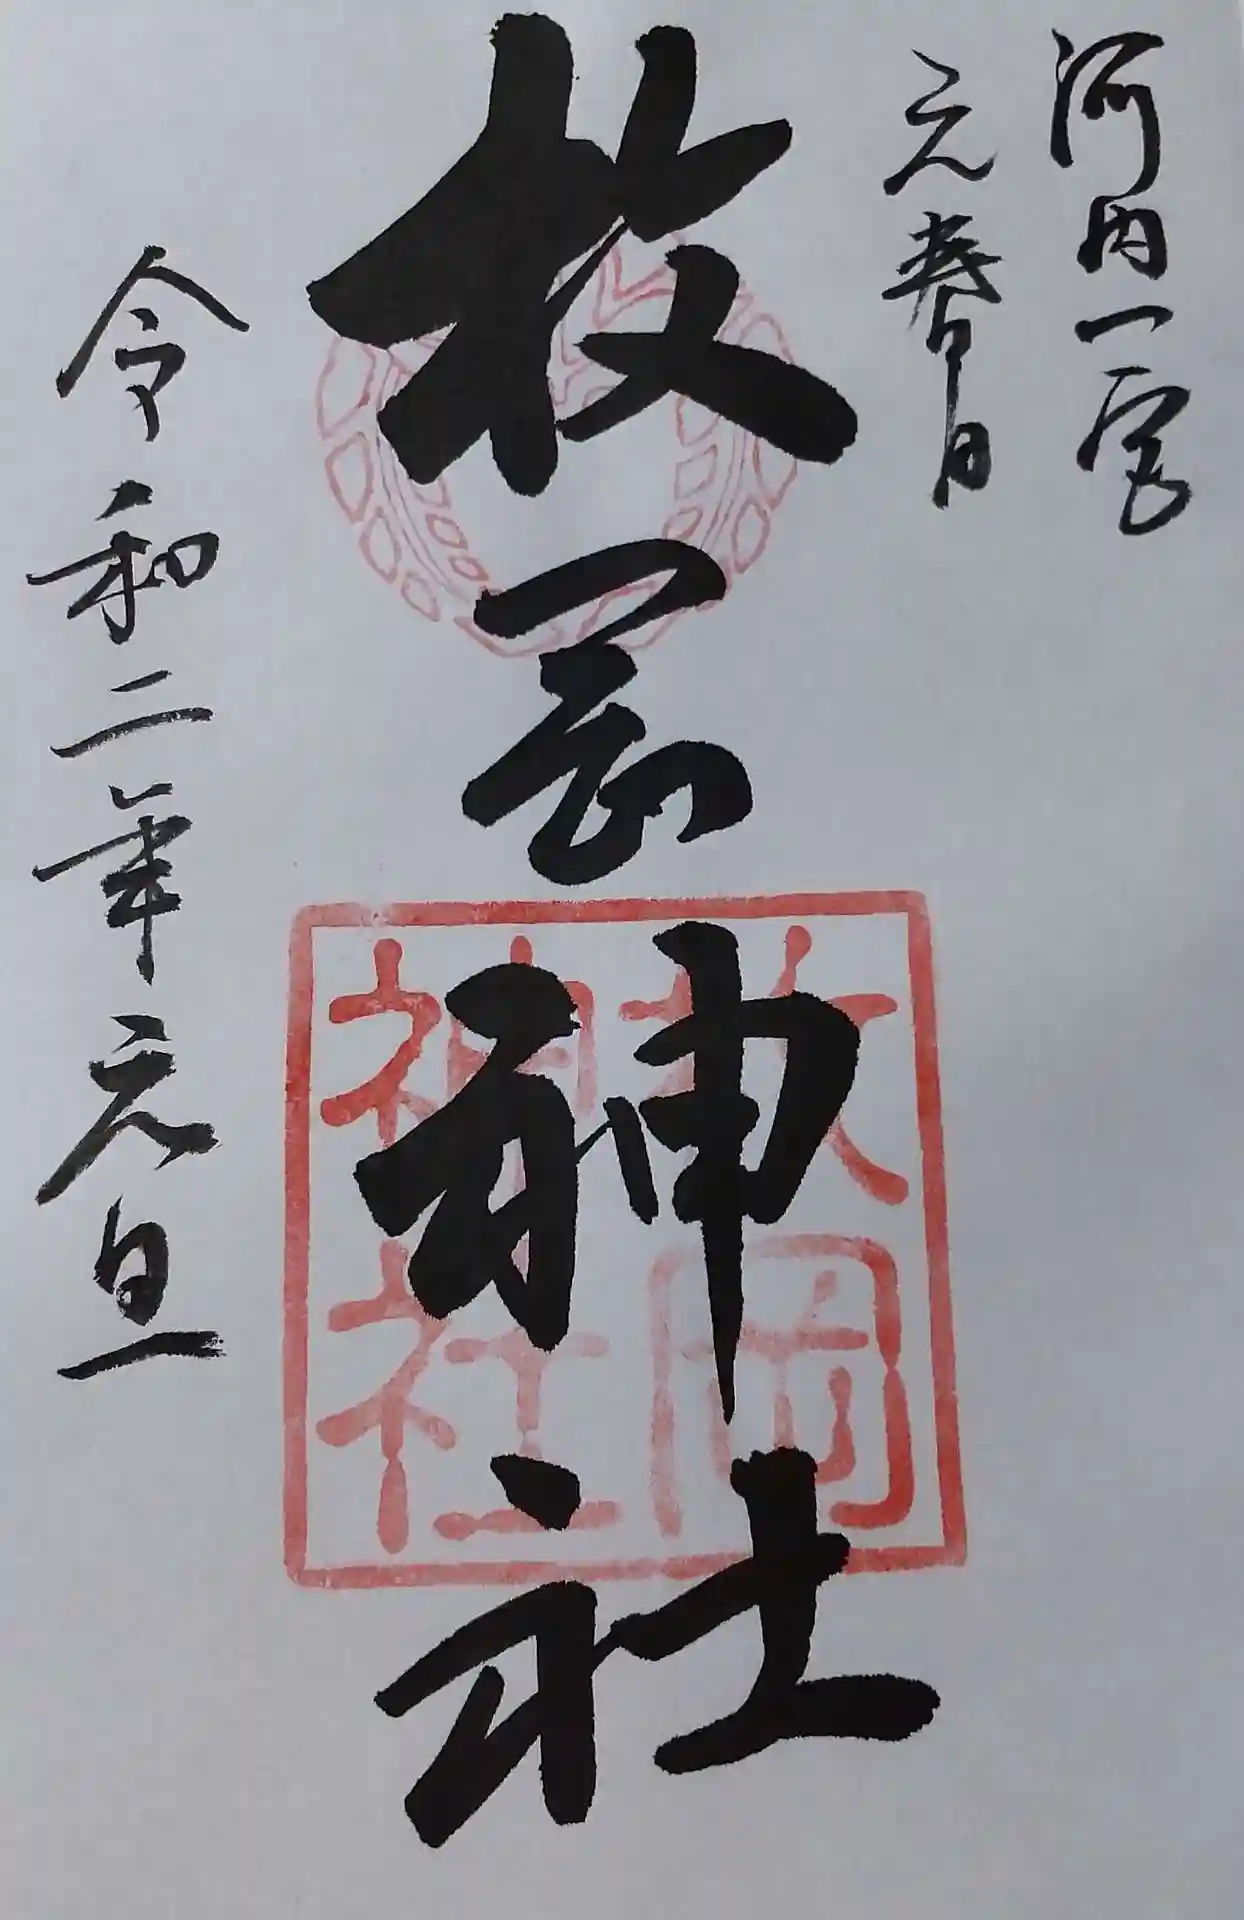 河内一宮
元春日
枚岡神社
枚岡
神社
令和二年元旦